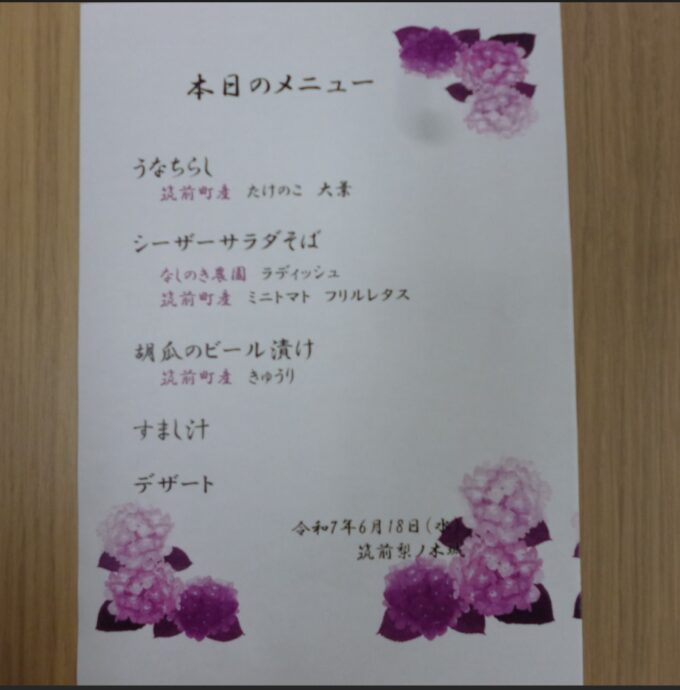 本日のメニュー
うなちらし
筑前町産 たけのこ 大葉
シーザーサラダそば
なしのき農園 ラディッシュ
筑前町産 ミニトマト フリルレタス
胡瓜のビール漬け
筑前町産 きゅうり
すまし汁
デザート
令和7年6月18日(水)
筑前梨ノ木城